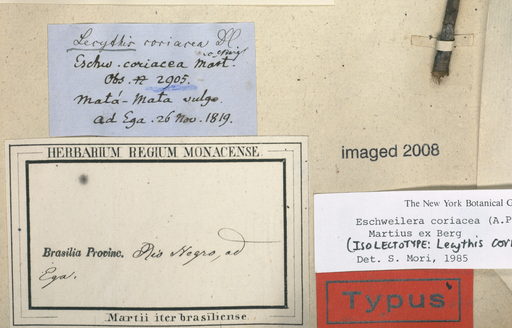 Lecythis coriacea DC.
Eschw. coriacea Mart.
Obs. 2905.
Matá-Mata vulgo.
ad Ega. 26 Nov. 1819.
HERBARIUM REGIUM MONACENSE.
Brasilia Provinc. Rio Negro, ad
Ega.
Martii iter brasiliense.
imaged 2008
The New York Botanical G
Eschweilera coriacea (A.P
Martius ex Berg
(ISOLECTOTYPE: Lecythis cori
Det. S. Mori, 1985
Typus